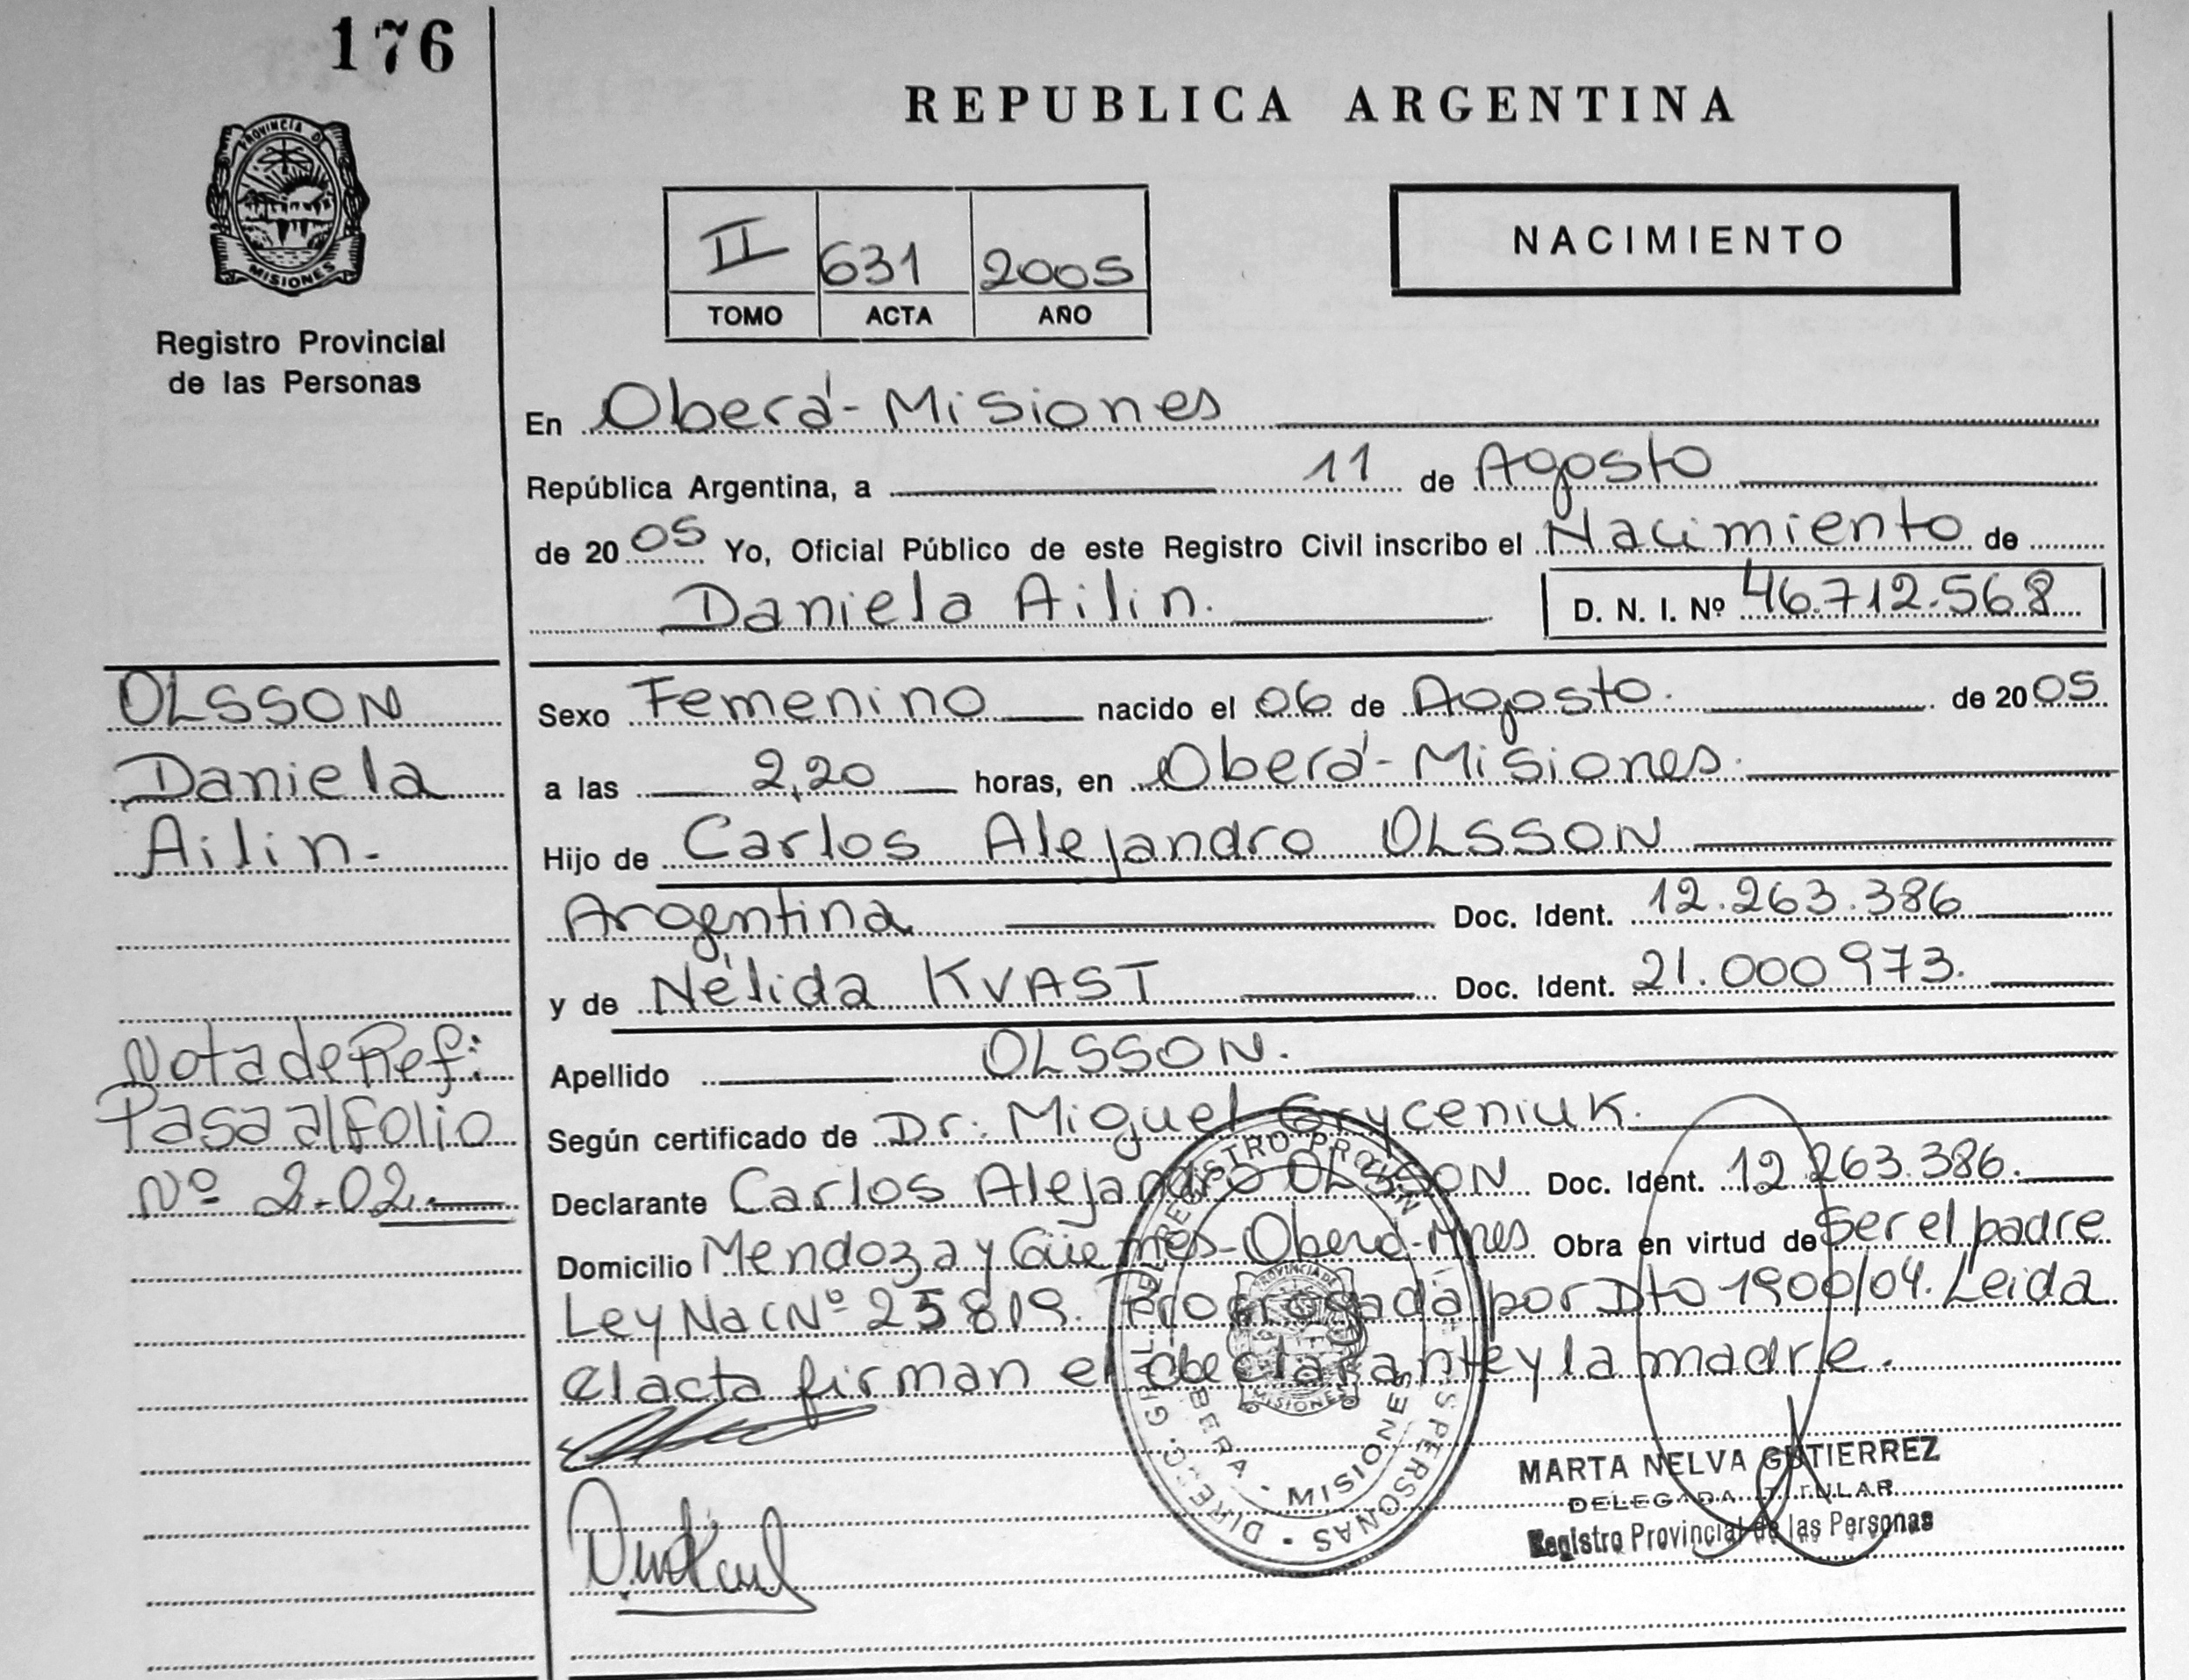 176
PROVINCIA DE
MISIONES
Registro Provincial
de las Personas
REPUBLICA ARGENTINA
II 631 2005
TOMO ACTA AÑO
NACIMIENTO
En Oberá - Misiones
República Argentina, a 11 de Agosto
de 2005 Yo, Oficial Público de este Registro Civil inscribo el Nacimiento de
Daniela Ailin. D. N. I. Nº 46.712.568
OLSSON
Daniela
Ailin.-
Nota de Ref:
Pasa al Folio
Nº 2-02.-
Sexo Femenino nacido el 06 de Agosto. de 2005
a las 2,20 horas, en Oberá - Misiones.
Hijo de Carlos Alejandro OLSSON
Argentina Doc. Ident. 12.263.386
y de Nélida KVAST Doc. Ident. 21.000973.
Apellido OLSSON.
Según certificado de Dr: Miguel Gryceniuk.
Declarante Carlos Alejandro OLSSON Doc. Ident. 12 263.386.
Domicilio Mendoza y Güemes - Oberá - Mnes Obra en virtud de Ser el padre
Ley Nac Nº 25819. Prorrogada por Dto 1900/04. Leida
el acta firman el declarante y la madre.
MARTA NELVA GUTIERREZ
DELEGADA TITULAR
Registro Provincial de las Personas
PROVINCIA DE
MISIONES
OBERA - MISIONES